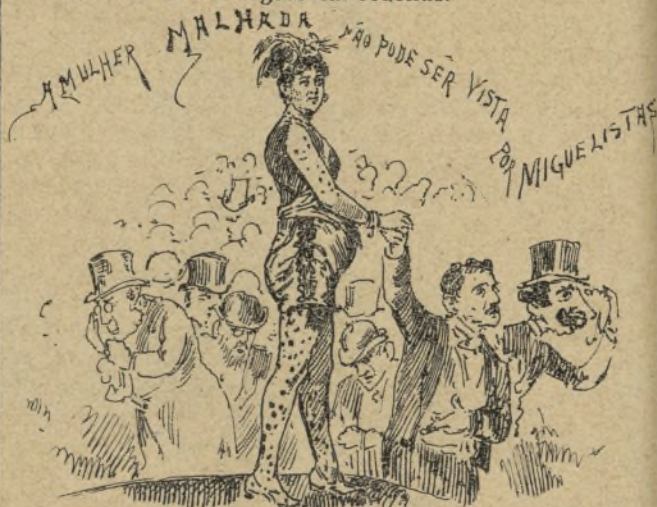 A MULHER MALHADA NÃO PODE SER VISTA POR MIGUELISTAS